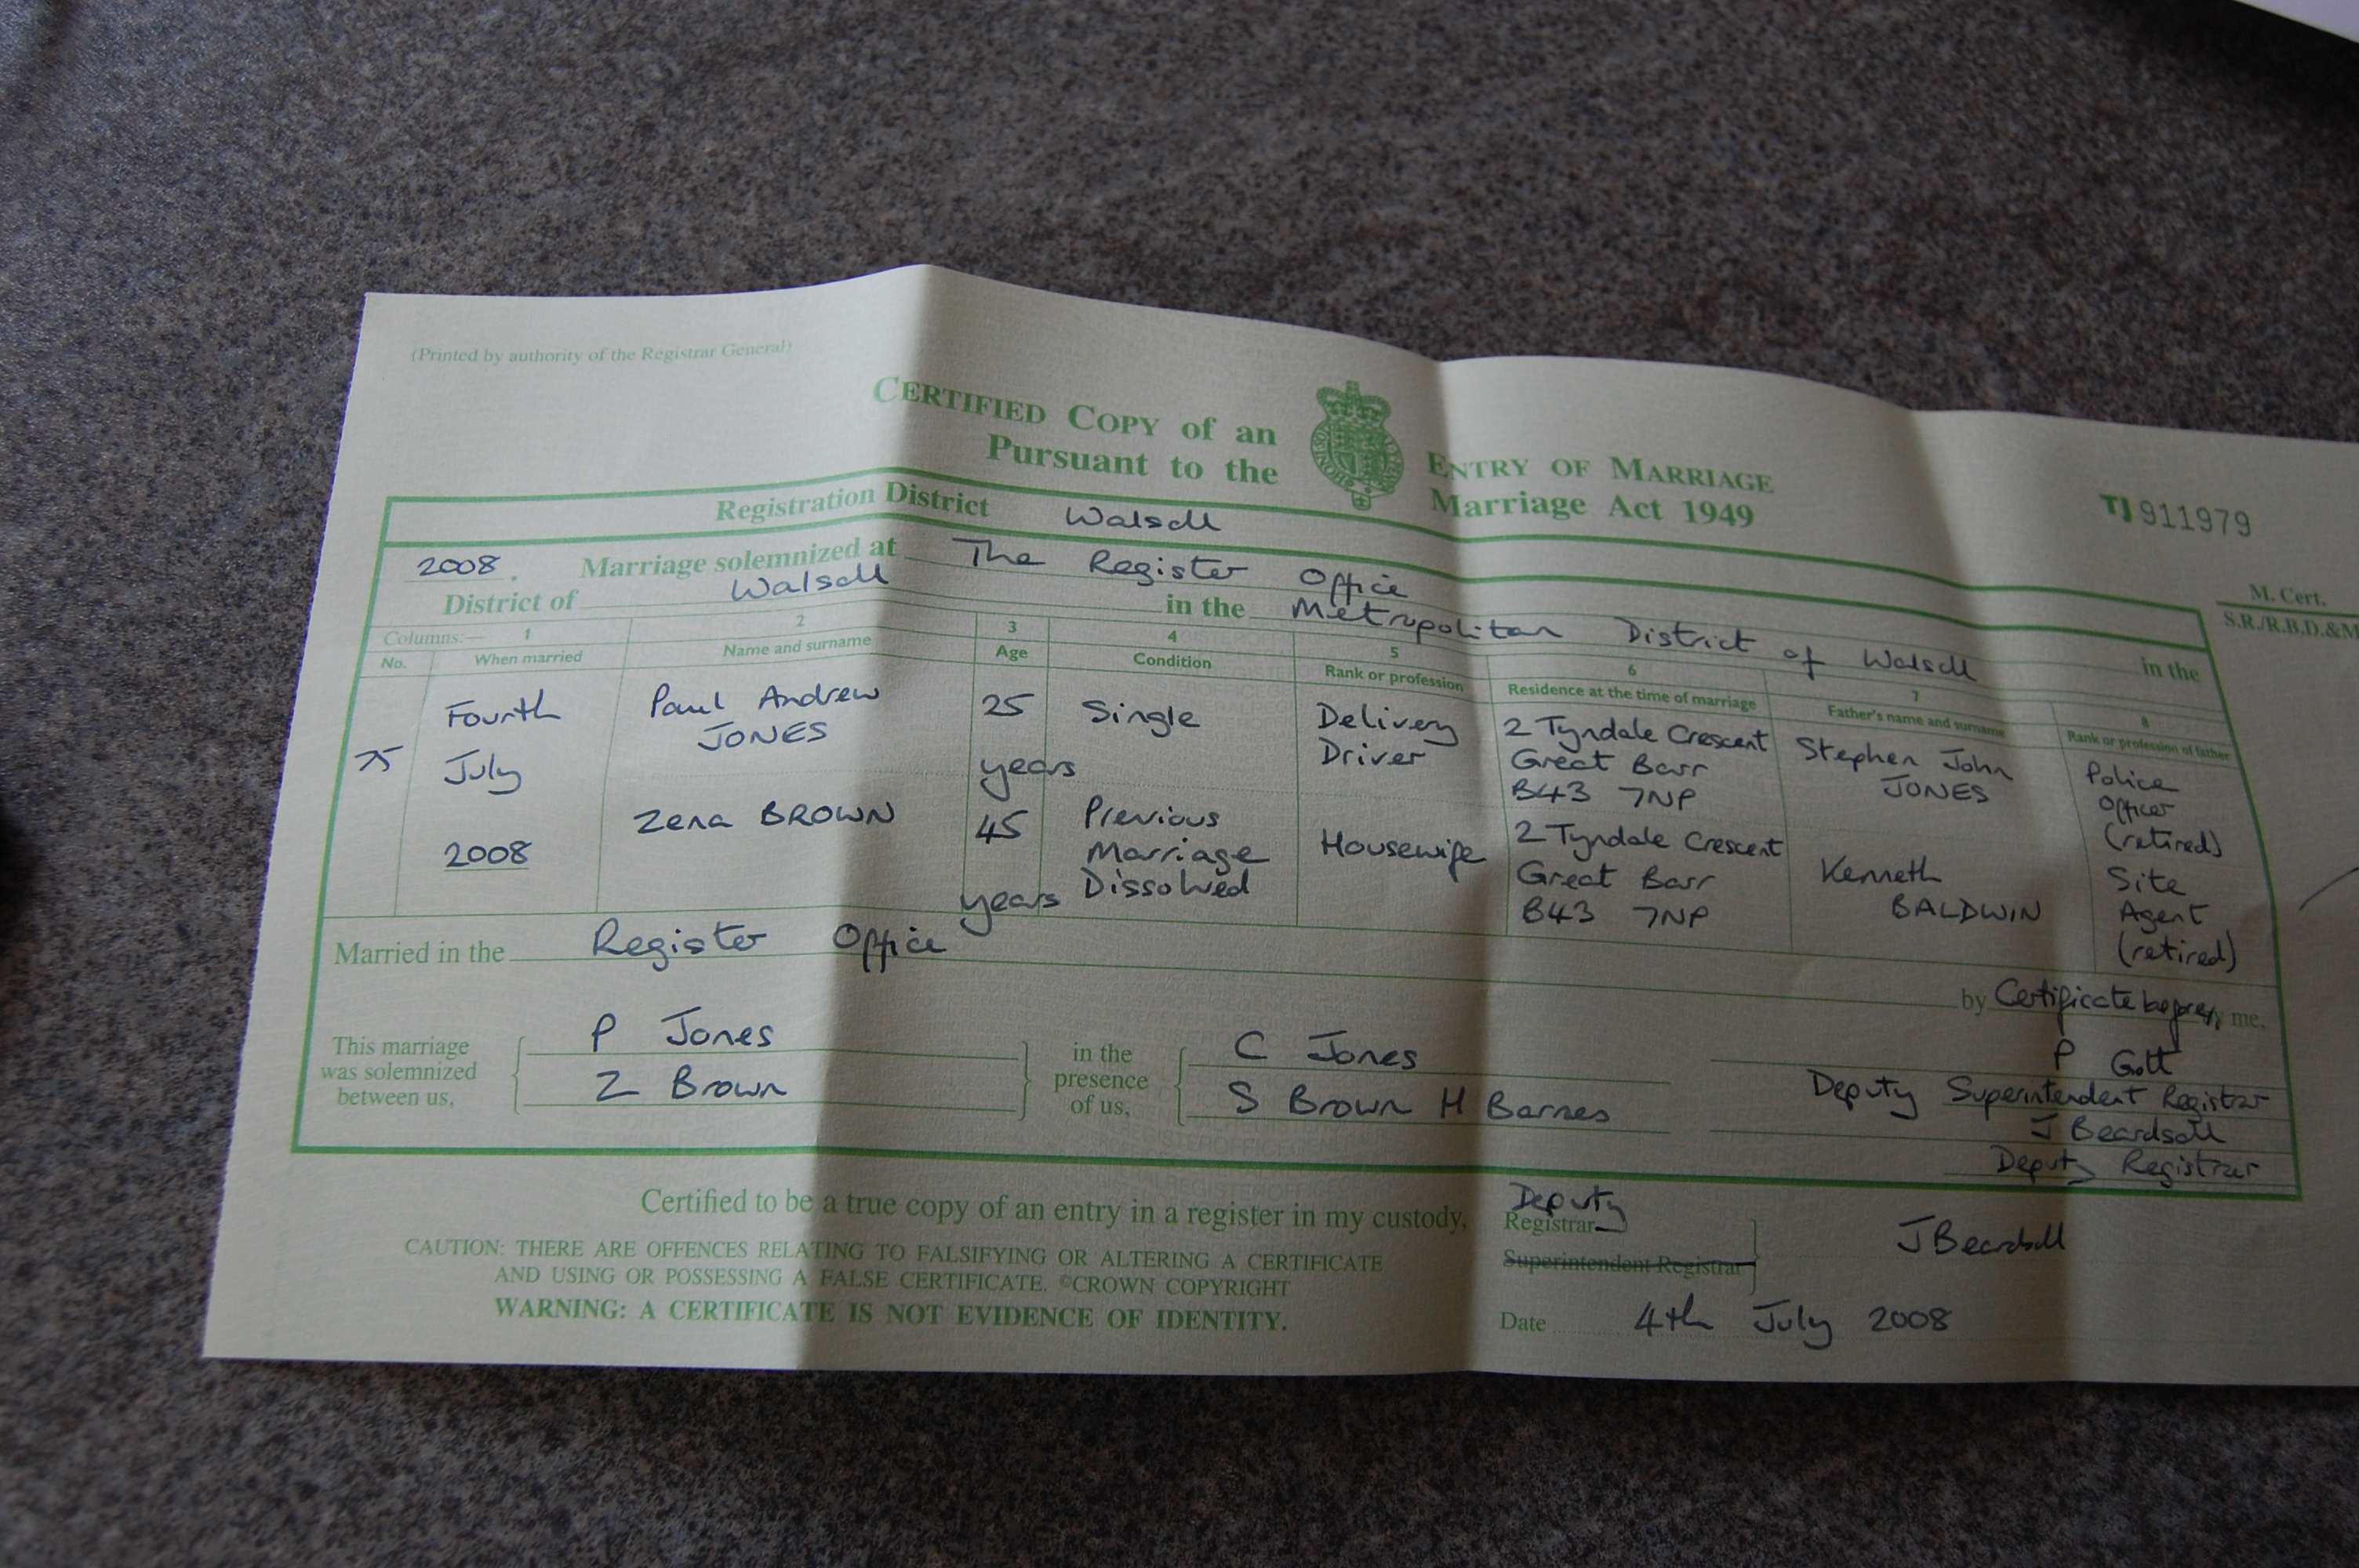 (Printed by authority of the Registrar General)
CERTIFIED COPY of an ENTRY OF MARRIAGE
Pursuant to the Marriage Act 1949
TJ 911979
Registration District Walsall
2008. Marriage solemnized at The Register Office
District of Walsall in the Metropolitan District of Walsall in the
M. Cert.
S.R./R.B.D.&M
Columns:— 1 2 3 4 5 6 7 8
No. When married Name and surname Age Condition Rank or profession Residence at the time of marriage Father's name and surname Rank or profession of father
75
Fourth
July
2008
Paul Andrew
JONES
25
years
Single
Delivery
Driver
2 Tyndale Crescent
Great Barr
B43 7NP
Stephen John
JONES
Police
Officer
(retired)
Zena BROWN
45
years
Previous
Marriage
Dissolved
Housewife
2 Tyndale Crescent
Great Barr
B43 7NP
Kenneth
BALDWIN
Site
Agent
(retired)
Married in the Register Office by Certificate before me,
This marriage
was solemnized
between us,
P Jones
Z Brown
in the
presence
of us,
C Jones
S Brown H Barnes
P Gott
Deputy Superintendent Registrar
J Beardsall
Deputy Registrar
Certified to be a true copy of an entry in a register in my custody,
Deputy
Registrar
Superintendent Registrar
J Beardsall
CAUTION: THERE ARE OFFENCES RELATING TO FALSIFYING OR ALTERING A CERTIFICATE
AND USING OR POSSESSING A FALSE CERTIFICATE. ©CROWN COPYRIGHT
WARNING: A CERTIFICATE IS NOT EVIDENCE OF IDENTITY.
Date 4th July 2008